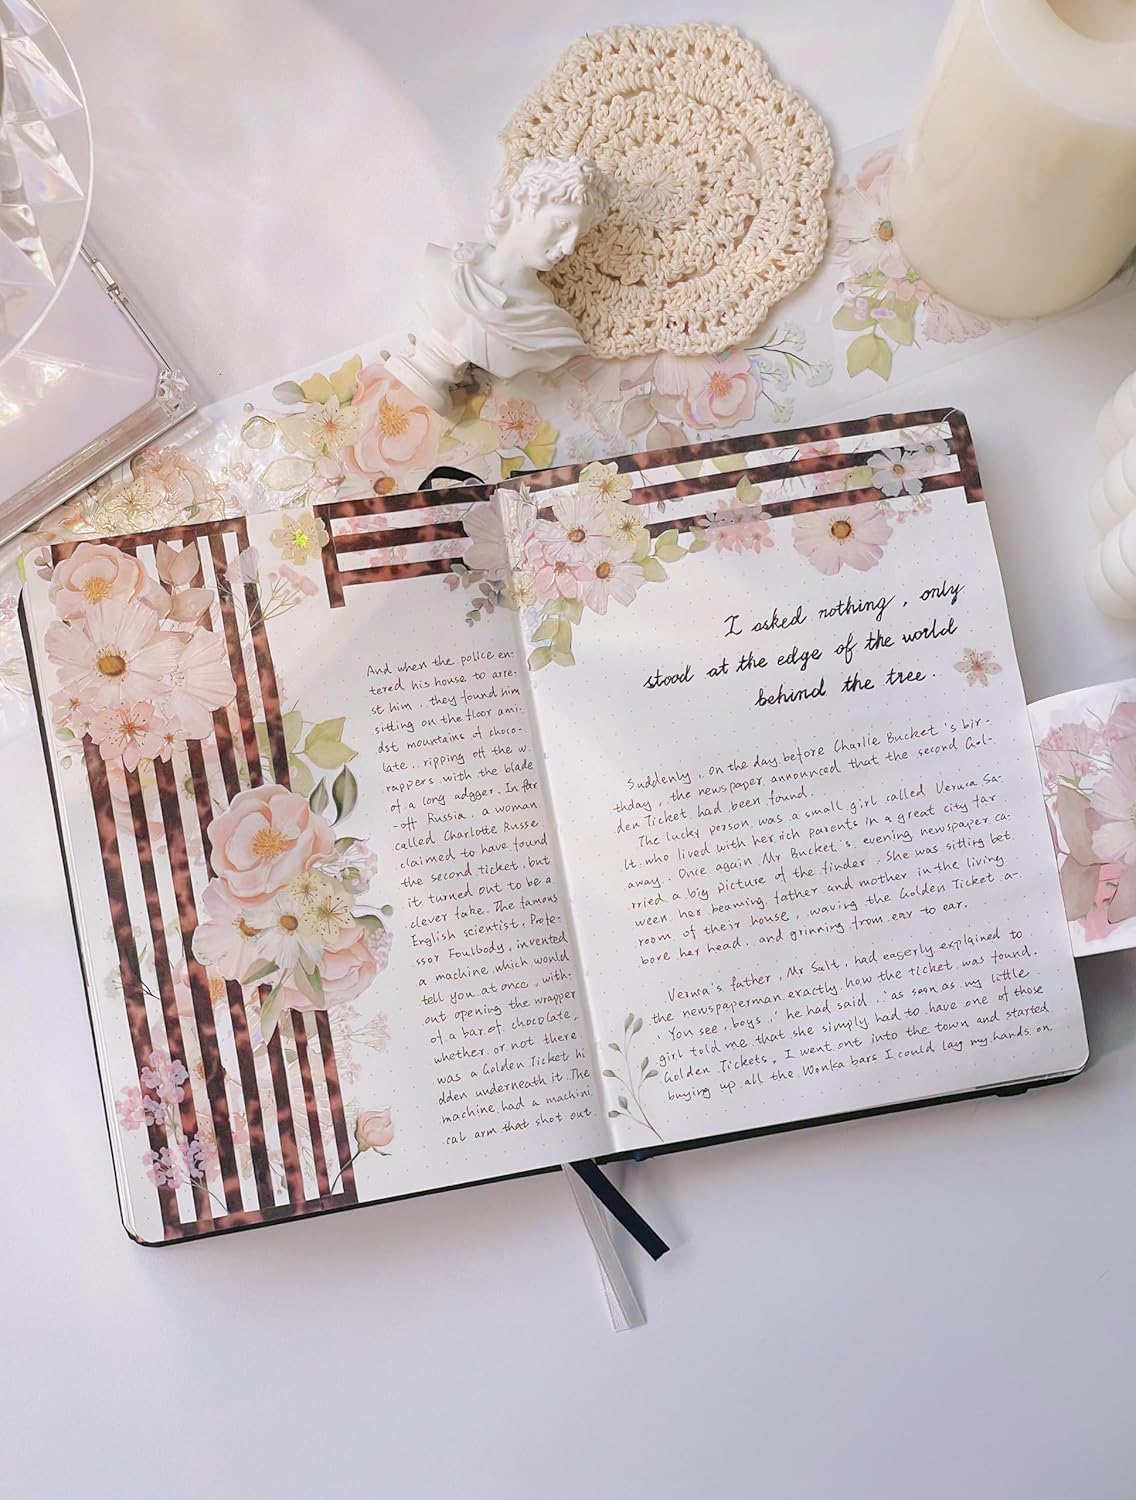 And when the police en-
tered his house to arre-
st him, they found him
sitting on the floor ami-
dst mountains of choco-
late, ripping off the w
rappers with the blade
of a long adgger. In far
-off Russia, a woman
called Charlotte Russe
claimed to have found
the second ticket, but
it turned out to be a
clever fake. The famous
English scientist, Profe-
ssor Foulbody, invented
a machine which would
tell you at once, with-
out opening the wrapper
of a bar of chocolate,
whether or not there
was a Golden Ticket hi
dden underneath it. The
machine had a machini
cal arm that shot out
I asked nothing, only
stood at the edge of the world
behind the tree.
Suddenly, on the day before Charlie Bucket's bir-
thday, the newspaper announced that the second Gol-
den Ticket had been found.
The lucky person was a small girl called Veruca Sa-
lt who lived with her rich parents in a great city far
away. Once again Mr Bucket's evening newspaper ca-
rried a big picture of the finder. She was sitting bet
ween her beaming father and mother in the living
room of their house, waving the Golden Ticket a-
bove her head, and grinning from ear to ear.
Veruca's father, Mr Salt, had eagerly explained to
the newspaperman exactly how the ticket was found.
'You see, boys,' he had said, 'as soon as my little
girl told me that she simply had to have one of those
Golden Tickets, I went out into the town and started
buying up all the Wonka bars I could lay my hands on